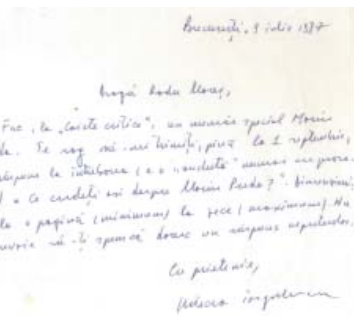 București, 9 iulie 1987
Dragă Radu Mareș,
Fac, la „Caiete critice”, un număr special Marin
da. Te rog să-mi trimiți, până la 1 septembrie,
răspuns la întrebarea (e o “anchetă” numai cu proza
) « Ce credeți azi despre Marin Preda? ». Dimensiuni:
la o pagină (minimum) la zece (maximum). Nu
nevoie să-ți spun că doresc un răspuns
Cu prietenie,
Mircea Iorgulescu